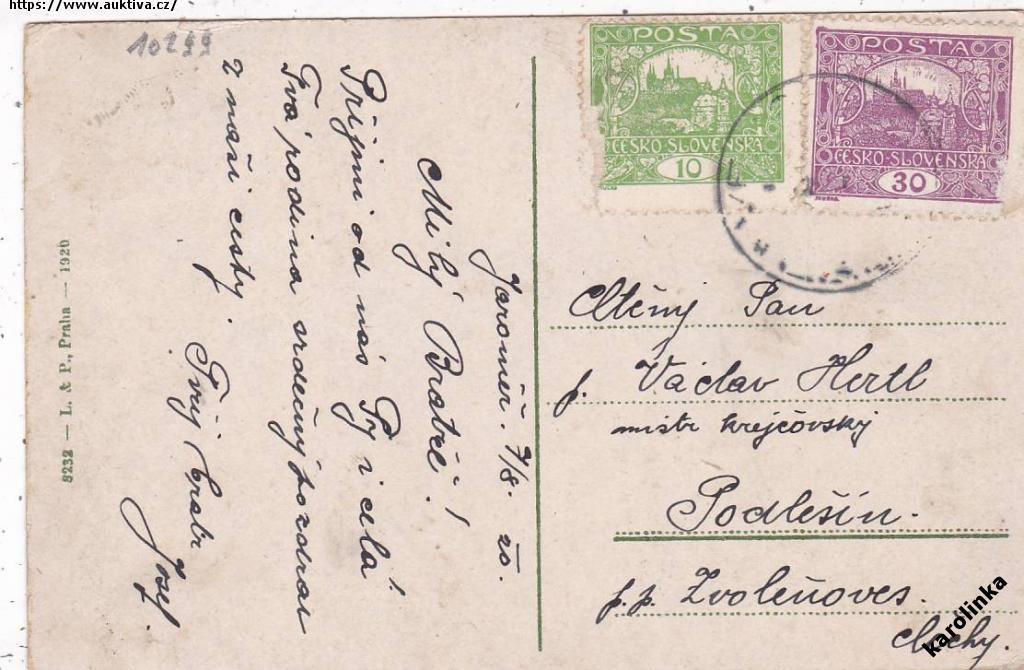 https://www.auktiva.cz/
10299
POSTA
ČESKO-SLOVENSKÁ
10
POSTA
ČESKO-SLOVENSKÁ
30
Jaroměř. 7/8. 20.
Milý Bratře!
Přijmi od nás Ty i celá
Tvá rodina srdečný pozdrav
z naší cesty.
Tvůj bratr
Josef.
8232 — L. & P., Praha — 1920
Ctěný Pan
p. Václav Hertl
mistr krejčovský
Podlešín.
p.p. Zvoleňoves.
Čechy.
karolinka